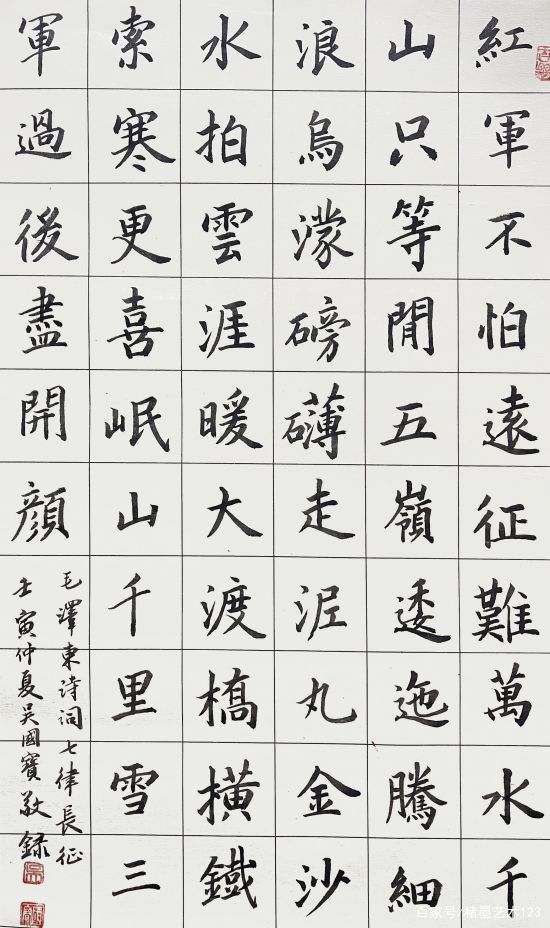 紅軍不怕遠征難萬水千
山只等閒五嶺逶迤騰細
浪烏濛磅礴走泥丸金沙
水拍雲涯暖大渡橋橫鐵
索寒更喜岷山千里雪三
軍過後盡開顏
毛澤東詩詞七律長征
壬寅仲夏吳國寶敬錄
百家号/楮墨艺术123